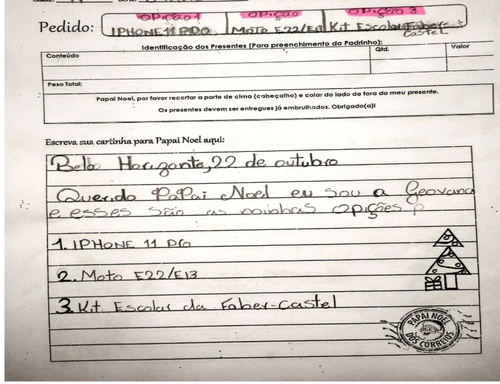 OPição 1 OPição OPição 3
Pedido: IPHONE 11 PRO MOTO E22/E13 Kit Escolar Faber-Castel
Identificação dos Presentes (Para preenchimento do Padrinho):
Conteúdo Qtd. Valor
Peso Total:
Papai Noel, por favor recortar a parte de cima (cabeçalho) e colar do lado de fora do meu presente.
Os presentes devem ser entregues já embrulhados. Obrigado(a)!
Escreva sua cartinha para Papai Noel aqui:
Belo Horizonte, 22 de outubro
Querido PaPai Noel eu sou a Geovana
e esses são as minhas OPições P
1. IPHONE 11 PRO
2. Moto E22/E13
3. Kit Escolar da Faber-Castel
PAPAI NOEL DOS CORREIOS